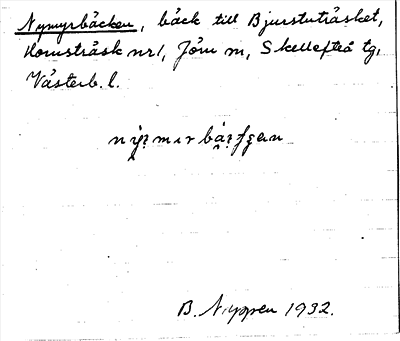 Nymyrbäcken, bäck till Bjurstuträsket,
Hornsträsk nr 1, Jörn sn, Skellefteå tg,
Västerb. l.
B. Nyppen 1932.